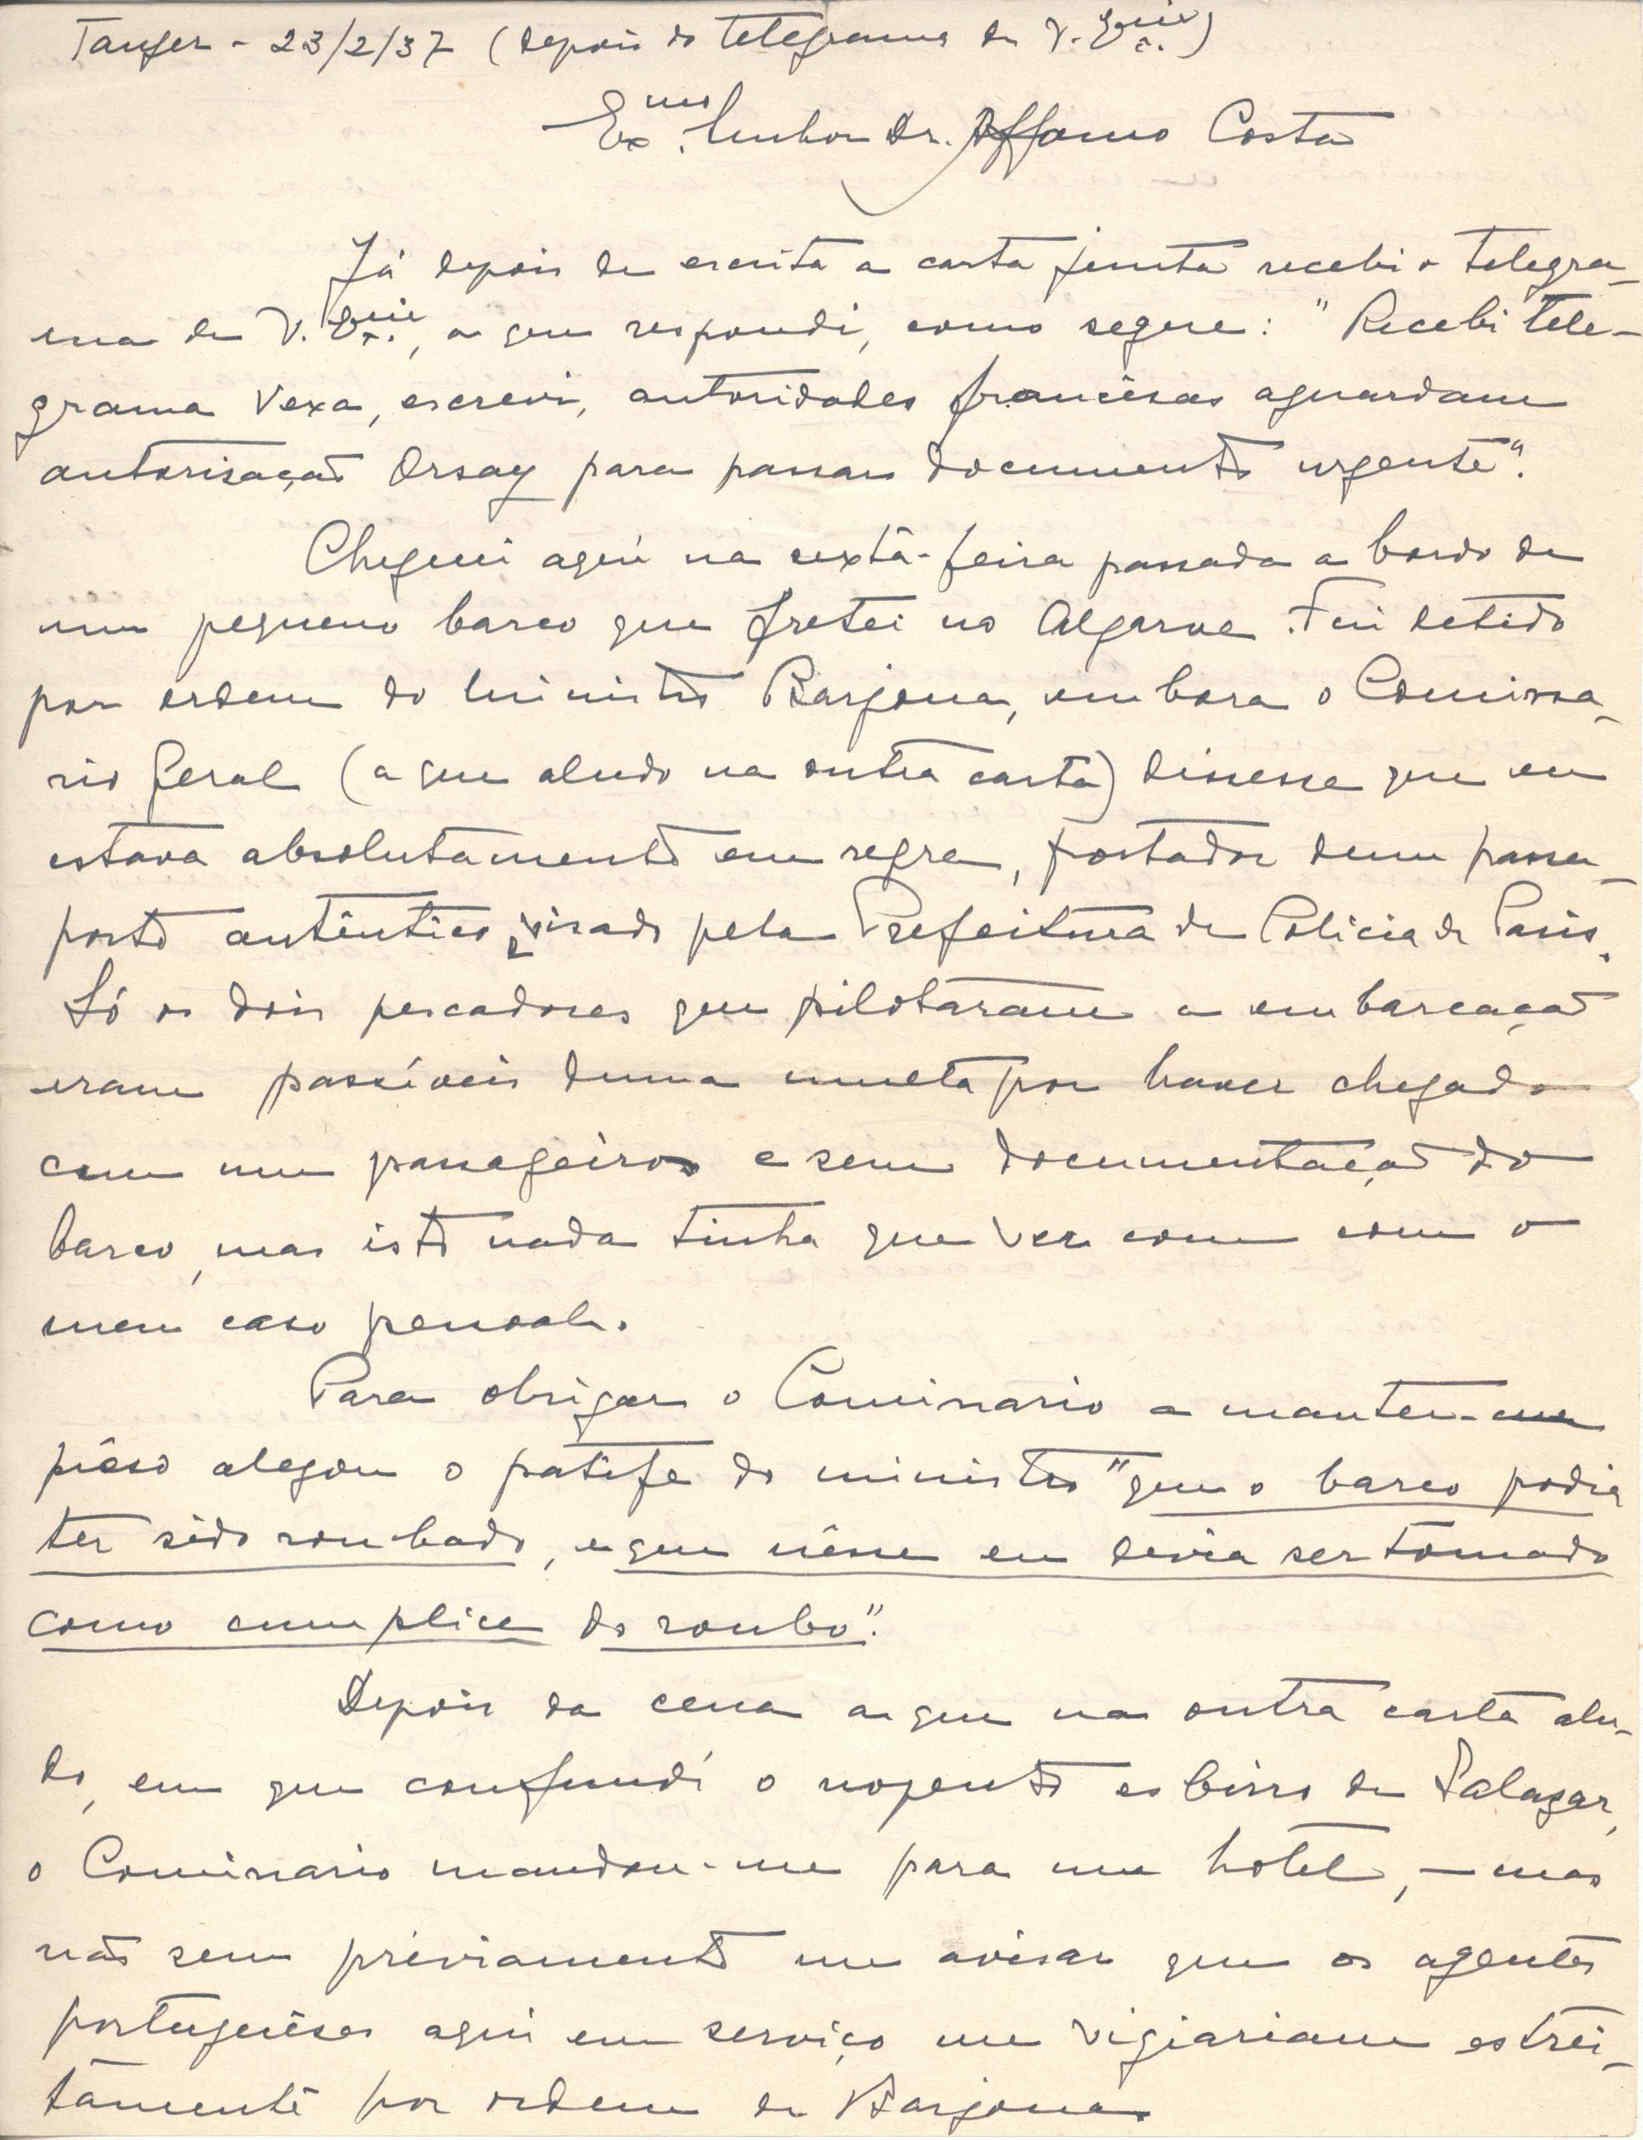 Tanger - 23/2/37 (depois do telegrama de V. Ex.cia)
Ex.mo Senhor Dr. Affonso Costa
Já depois de escrita a carta junta recebi o telegra-
ma de V. Ex.cia, a que respondi, como segue: "Recebi tele-
grama Vexa, escrevi, autoridades francêsas aguardam
autorisação Orsay para passar documento urgente".
Cheguei aqui na sexta-feira passada a bordo de
um pequeno barco que fretei no Algarve. Fui detido
por ordem do ministro Barjona, embora o Comissa-
rio Geral (a que aludo na outra carta) dissesse que eu
estava absolutamente em regra, portador dum passa-
porte autêntico e visado pela Prefeitura de Policia de Paris.
Só os dois pescadores que pilotaram a embarcação
eram passíveis duma multa por haver chegado
com um passageiro e sem documentação do
barco, mas isto nada tinha que ver com com o
meu caso pessoal.
Para obrigar o Comissario a manter-me
prêso alegou o patife do ministro "que o barco podia
ter sido roubado, e que nêsse eu devia ser tomado
como cumplice do roubo".
Depois da cena a que na outra carta alu-
do, em que confundí o nojento esbirro de Salazar,
o Comissario mandou-me para um hotel, - mas
não sem préviamente me avisar que os agentes
portuguêses aqui em serviço me vigiariam estrei-
tamente por ordem de Barjona.